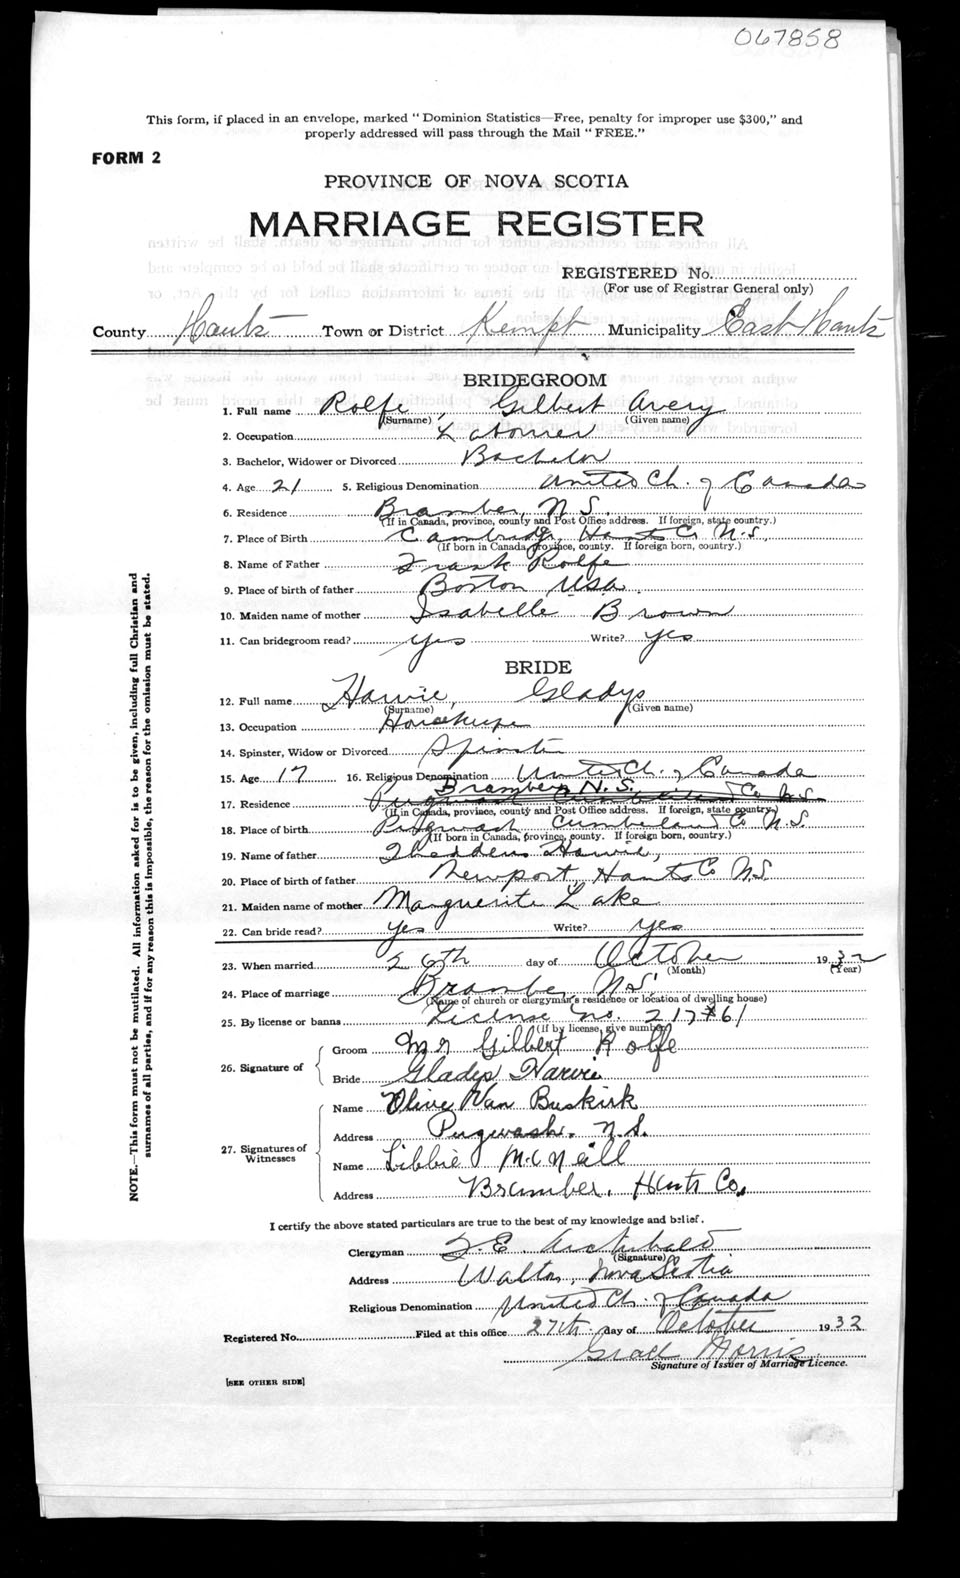 067858
This form, if placed in an envelope, marked "Dominion Statistics—Free, penalty for improper use $300," and
properly addressed will pass through the Mail "FREE."
FORM 2
PROVINCE OF NOVA SCOTIA
MARRIAGE REGISTER
REGISTERED No.
(For use of Registrar General only)
County Hants Town or District Kempt Municipality East Hants
BRIDEGROOM
1. Full name Rolfe, Gilbert Avery
(Surname) (Given name)
2. Occupation Labourer
3. Bachelor, Widower or Divorced Bachelor
4. Age 21 5. Religious Denomination United Ch. of Canada
6. Residence Bramber, N.S.
(If in Canada, province, county and Post Office address. If foreign, state country.)
7. Place of Birth Cambridge, Hants Co N.S.
(If born in Canada, province, county. If foreign born, country.)
8. Name of Father Frank Rolfe
9. Place of birth of father Boston USA.
10. Maiden name of mother Isabelle Brown
11. Can bridegroom read? yes Write? yes
BRIDE
12. Full name Harvie, Gladys
(Surname) (Given name)
13. Occupation Housekeeper
14. Spinster, Widow or Divorced Spinster
15. Age 17 16. Religious Denomination United Ch. of Canada
Bramber N.S.
17. Residence Pugwash Cumberland Co N.S.
(If in Canada, province, county and Post Office address. If foreign, state country.)
18. Place of birth Pugwash Cumberland Co N.S.
(If born in Canada, province, county. If foreign born, country.)
19. Name of father Thaddeus Harvie,
20. Place of birth of father Newport Hants Co N.S.
21. Maiden name of mother Marguerite Lake
22. Can bride read? yes Write? yes
23. When married 26th day of October 1932
(Month) (Year)
24. Place of marriage Bramber N.S.
(Name of church or clergyman's residence or location of dwelling house)
25. By license or banns License no. 21761
(If by license, give number)
26. Signature of Groom Mr Gilbert Rolfe
Bride Gladys Harvie
27. Signatures of Witnesses Name Olive Van Buskirk
Address Pugwash. N.S.
Name Libbie McNeill
Address Bramber, Hants Co.
I certify the above stated particulars are true to the best of my knowledge and belief.
Clergyman E. Archibald
(Signature)
Address Walton, Nova Scotia
Religious Denomination United Ch. of Canada
Registered No. Filed at this office 27th day of October 1932
Grace Morris
Signature of Issuer of Marriage Licence.
[SEE OTHER SIDE]
NOTE.—This form must not be mutilated. All information asked for is to be given, including full Christian and
surnames of all parties, and if for any reason this is impossible, the reason for the omission must be stated.